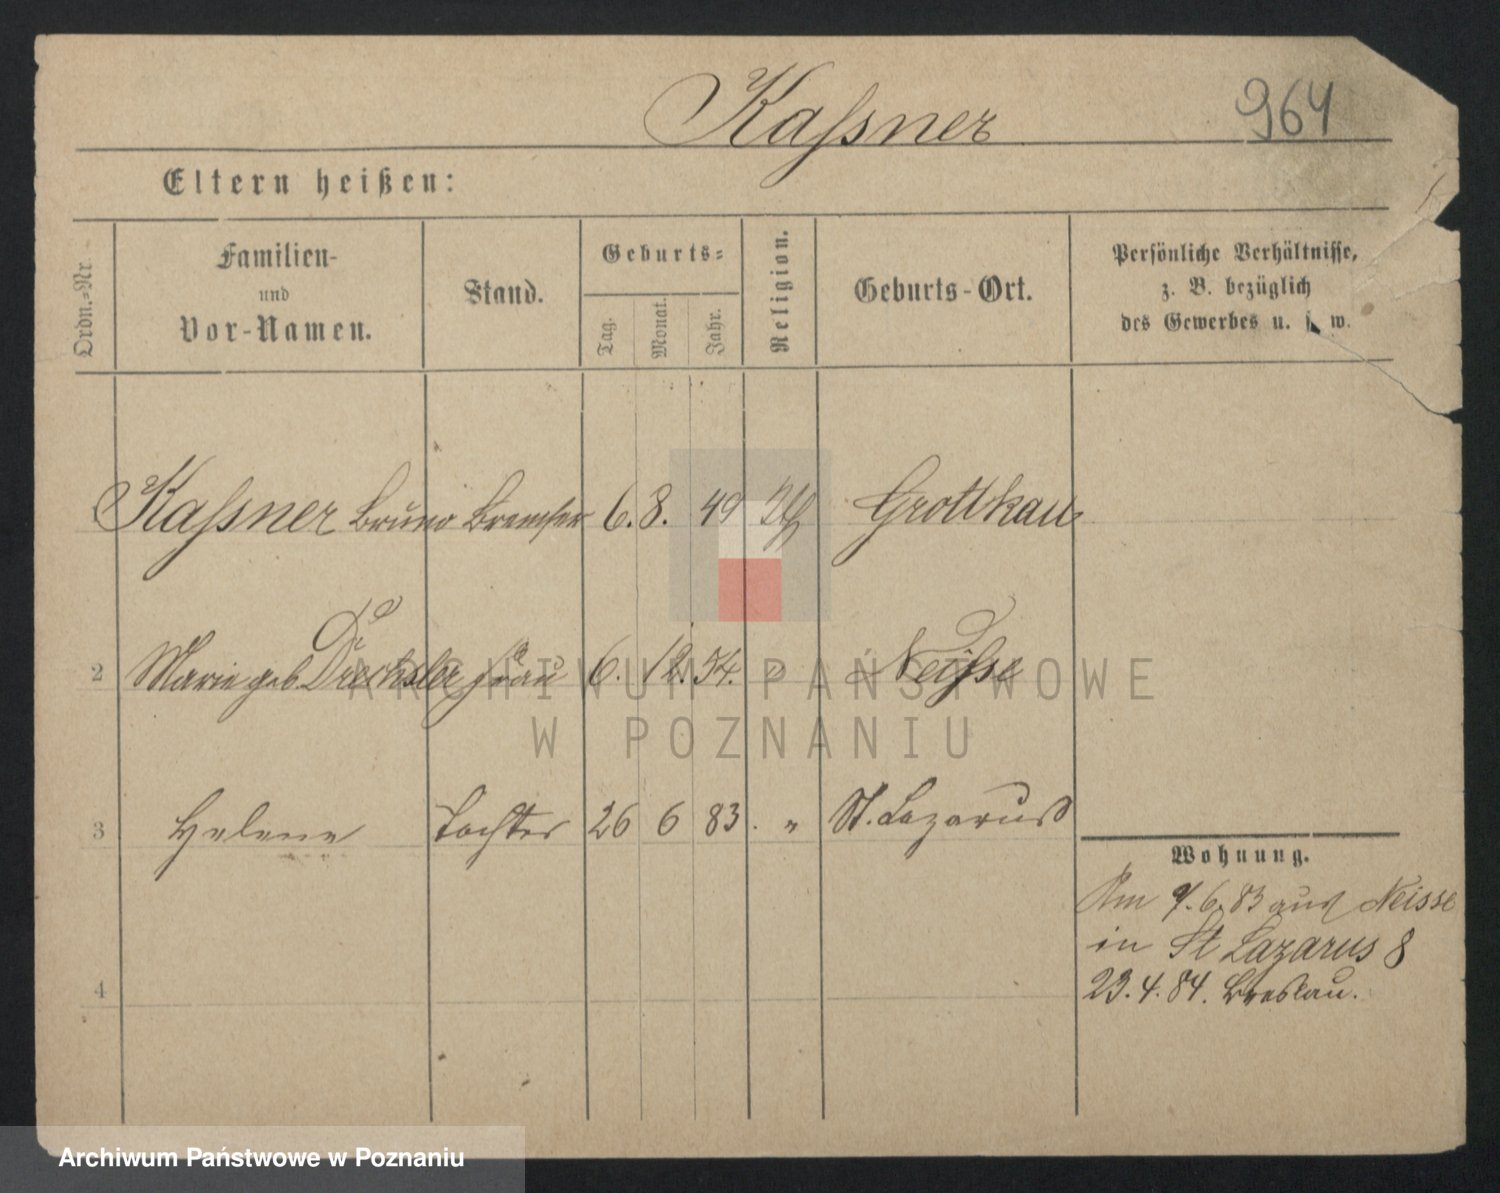 Kaſsner
964
Eltern heißen:
Ordn.=Nr.
Familien-
und
Vor-Namen.
Stand.
Geburts=
Tag.
Monat.
Jahr.
Religion.
Geburts-Ort.
Persönliche Verhältnisse,
z. B. bezüglich
des Gewerbes u. s. w.
Kaſsner Bruno Bremser 6. 8. 49 Grottkau
2 Marie geb. Drechsler Frau 6. 12. 54. " Neiſse
3 Helene Tochter 26 6 83 " St. Lazarus
4
Wohnung.
Am 9. 6. 83 aus Neisse
in St Lazarus 8
23. 4. 84. Breslau.
ARCHIWUM PAŃSTWOWE
W POZNANIU
Archiwum Państwowe w Poznaniu